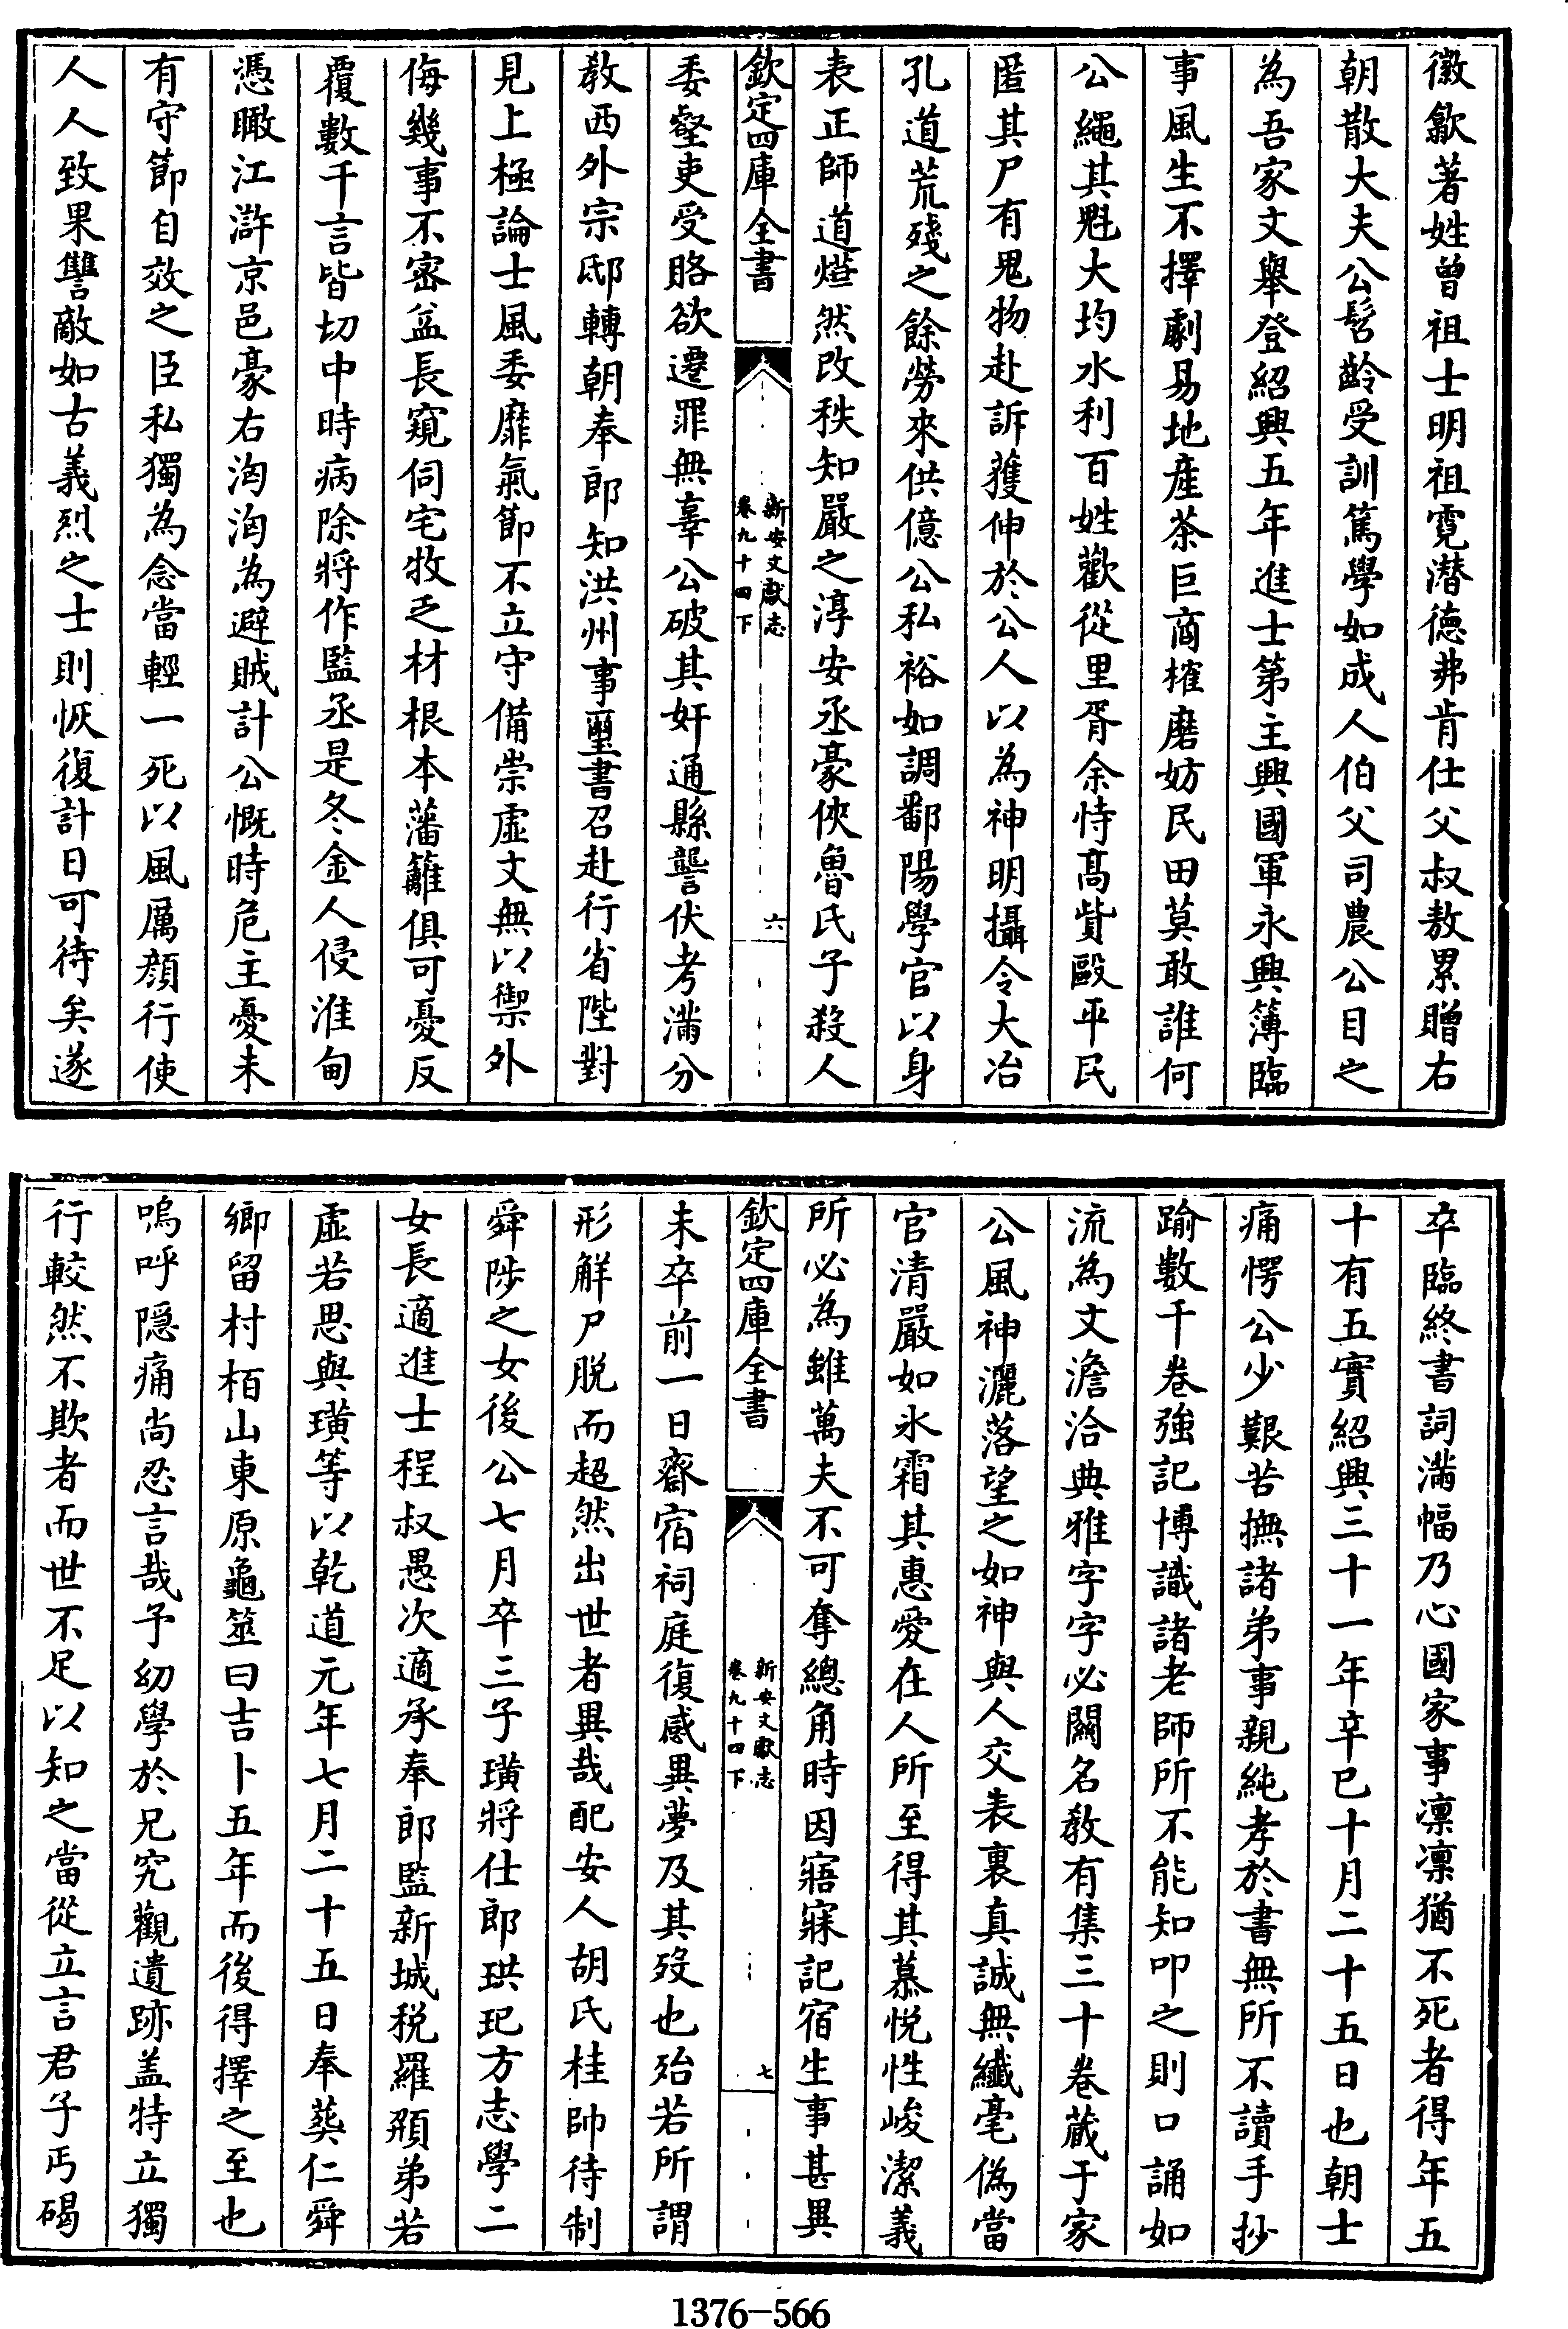 徽歙著姓曾祖士明祖霓潜德弗肯仕父叔敖累贈右
朝散大夫公髫齡受訓篤學如成人伯父司農公目之
為吾家文舉登紹興五年進士第主興國軍永興簿臨
事風生不擇劇易地產茶巨商榷磨妨民田莫敢誰何
公繩其魁大均水利百姓歡從里胥余恃髙貲毆平民
匿其尸有鬼物赴訴獲伸於公人以為神明攝令大冶
孔道荒殘之餘勞來供億公私裕如調鄱陽學官以身
表正師道燈然改秩知嚴之淳安丞豪俠魯氏子殺人
欽定四庫全書
新安文獻志
卷九十四下
六
委壑吏受賂欲遷罪無辜公破其奸通縣讋伏考滿分
教西外宗邸轉朝奉郎知洪州事璽書召赴行省陛對
見上極論士風委靡氣節不立守備崇虛文無以禦外
侮幾事不密盆長窺伺宅牧乏材根本藩籬俱可憂反
覆數千言皆切中時病除將作監丞是冬金人侵淮甸
憑瞰江滸京邑豪右洶洶為避賊計公慨時危主憂未
有守節自效之臣私獨為念當輕一死以風厲顔行使
人人致果讐敵如古義烈之士則恢復計日可待矣遂
卒臨終書詞滿幅乃心國家事凛凛猶不死者得年五
十有五實紹興三十一年辛巳十月二十五日也朝士
痛愕公少艱苦撫諸弟事親純孝於書無所不讀手抄
踰數千卷強記博識諸老師所不能知叩之則口誦如
流為文澹洽典雅字字必關名教有集三十卷蔵于家
公風神灑落望之如神與人交表裏真誠無纖毫偽當
官清嚴如氷霜其惠愛在人所至得其慕悅性峻潔義
所必為雖萬夫不可奪總角時因寤寐記宿生事甚異
欽定四庫全書
新安文獻志
卷九十四下
七
未卒前一日齋宿祠庭復感異夢及其歿也殆若所謂
形解尸脫而超然出世者異哉配安人胡氏桂帥待制
舜陟之女後公七月卒三子璜將仕郎珙玘方志學二
女長適進士程叔愚次適承奉郎監新城税羅頖弟若
虛若思與璜等以乾道元年七月二十五日奉葬仁舜
鄉留村栢山東原龜筮曰吉卜五年而後得擇之至也
嗚呼隱痛尚忍言哉予幼學於兄究觀遺跡盖特立獨
行較然不欺者而世不足以知之當從立言君子丐碣
1376-566